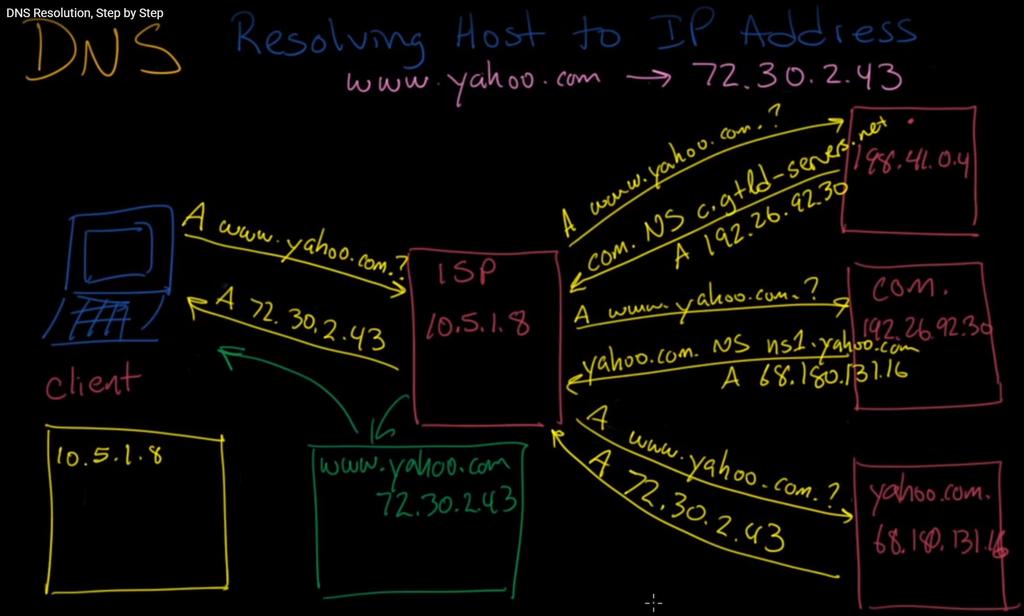 DNS Resolution, Step by Step
DNS
Resolving Host to IP Address
www.yahoo.com → 72.30.2.43
A www.yahoo.com.?
A 72.30.2.43
client
10.5.1.8
ISP
10.5.1.8
www.yahoo.com
72.30.2.43
A www.yahoo.com.?
com. NS c.gtld-servers.net
A 192.26.92.30
.
198.41.0.4
A www.yahoo.com.?
yahoo.com. NS ns1.yahoo.com
A 68.180.131.16
com.
192.26.92.30
A www.yahoo.com.?
A 72.30.2.43
yahoo.com.
68.180.131.16